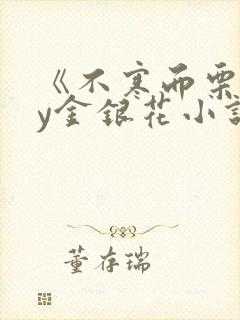 《不寒而栗
y金银花小说
董存瑞